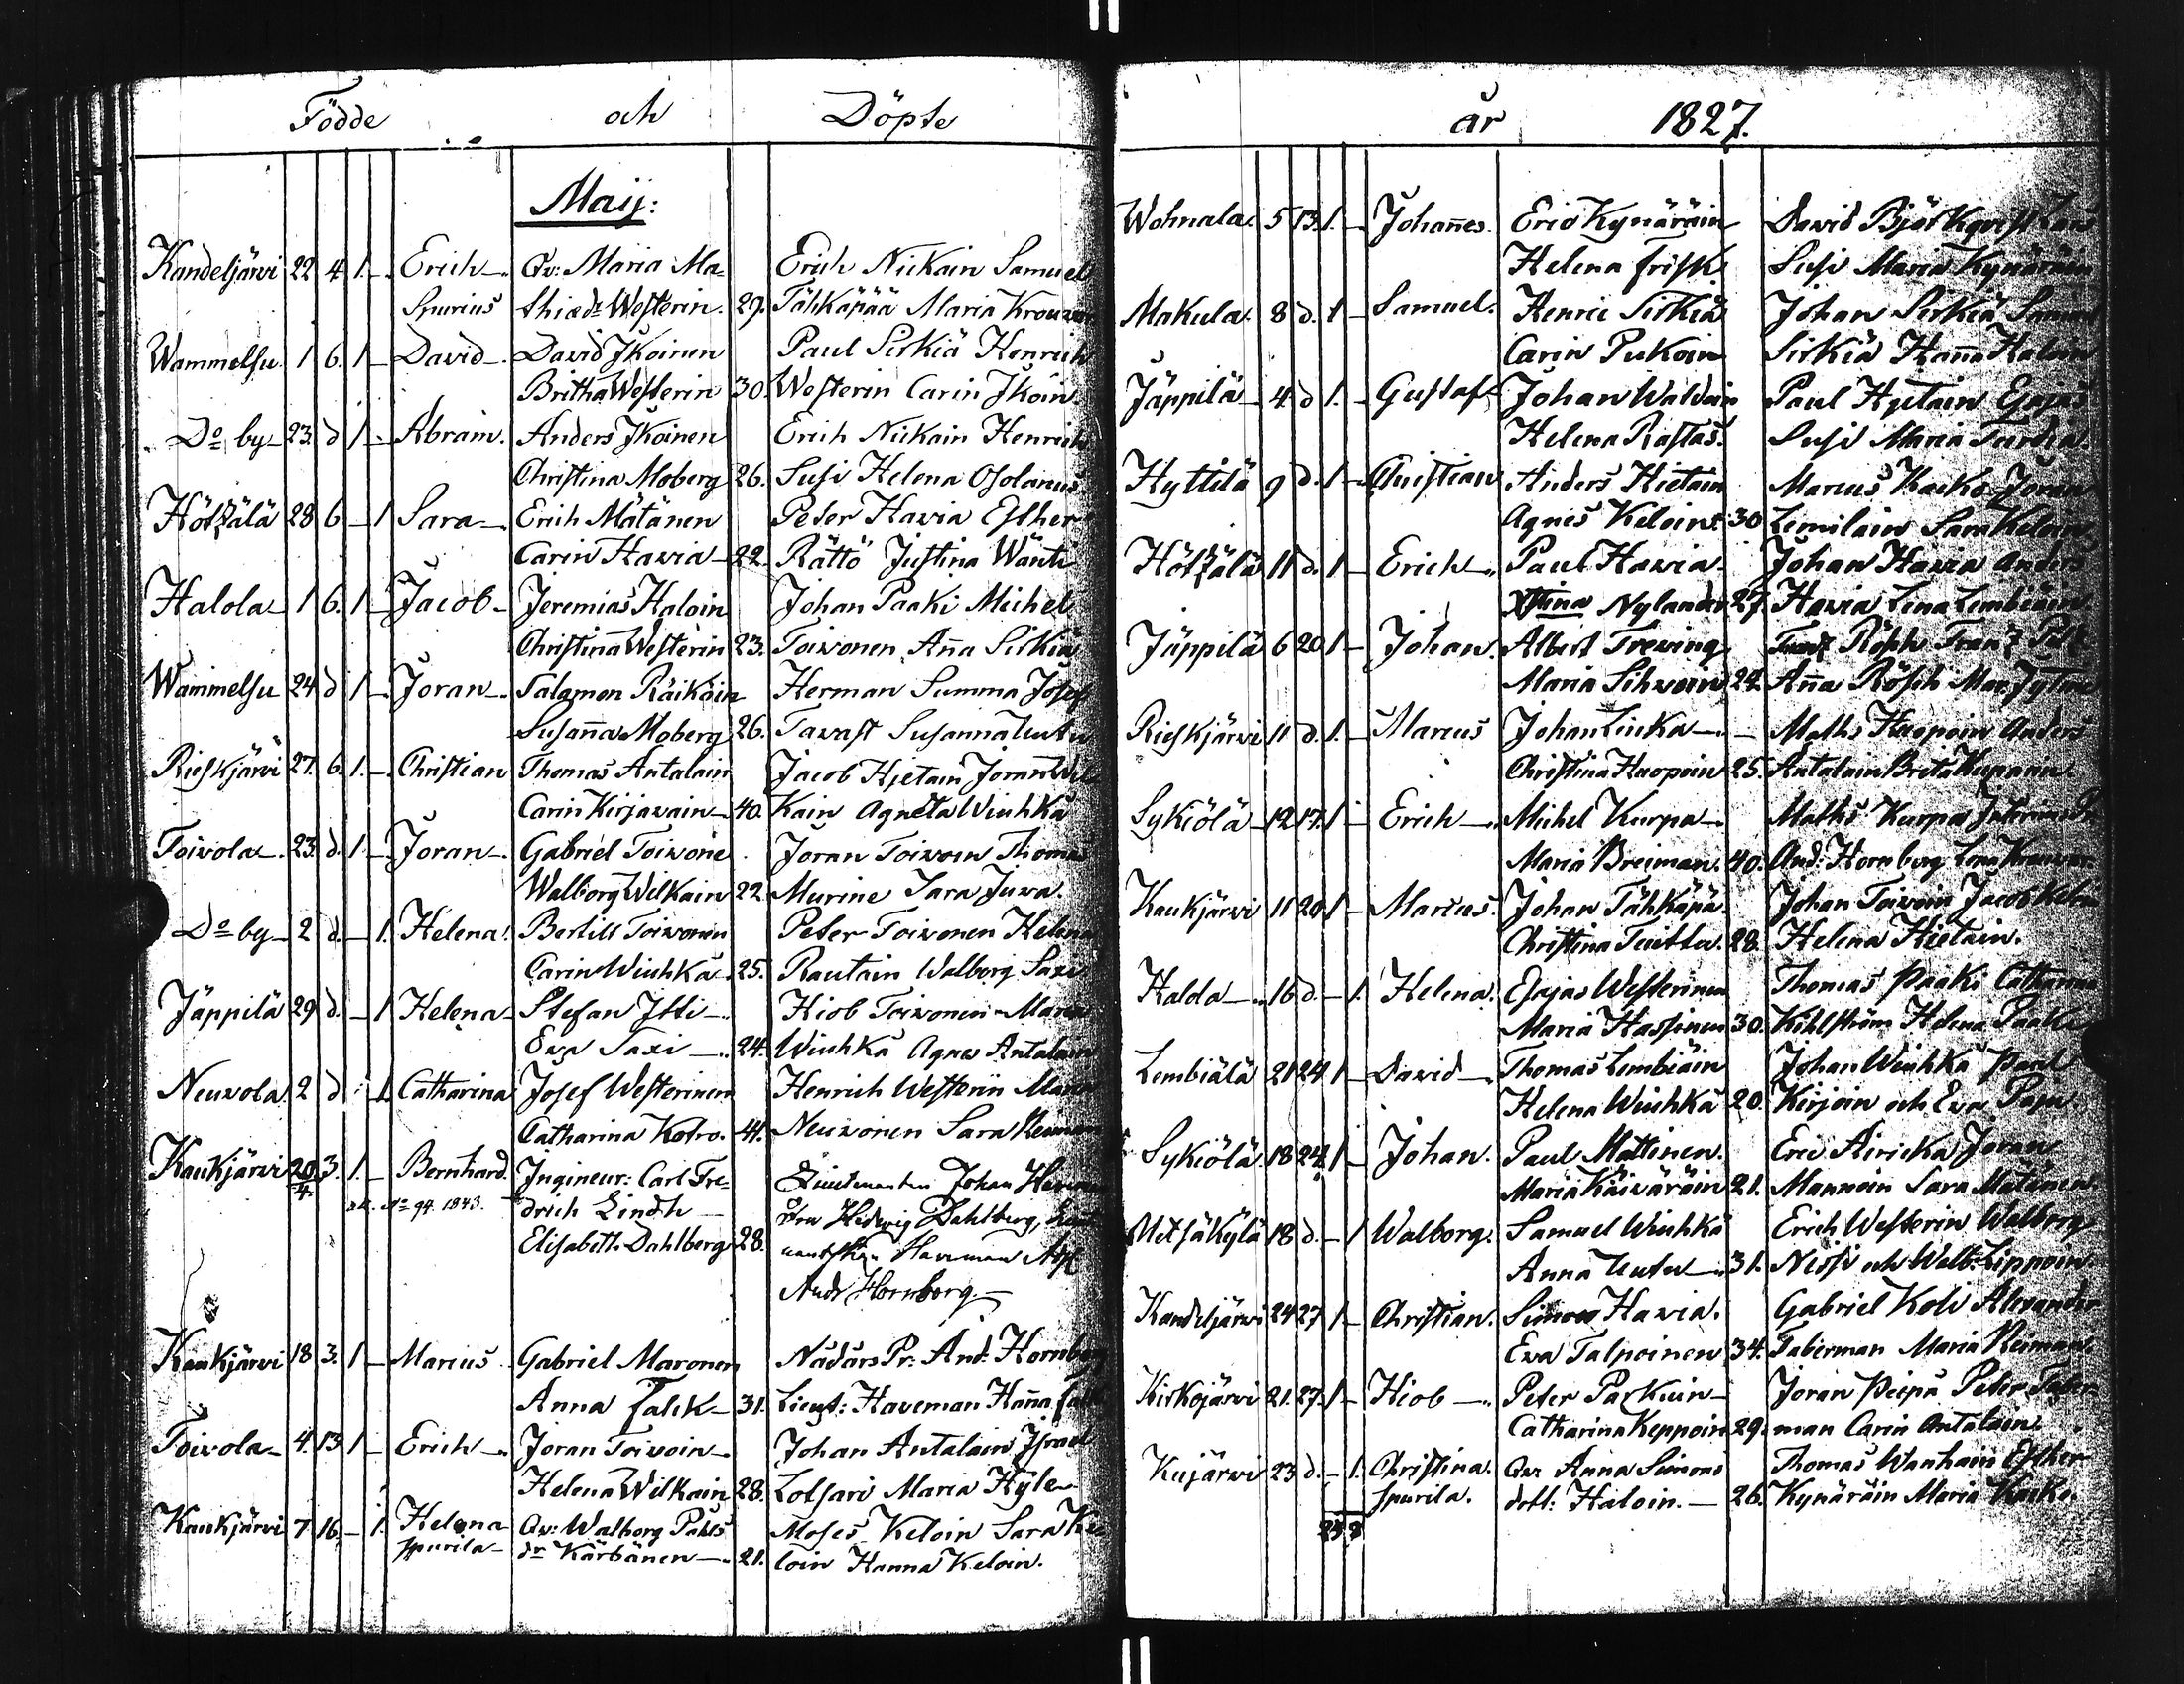 Födde och Döpte
Maij:
Kandeljärvi 22 4 1 – Erich – Qv: Maria Ma= Erich Nickain Samuel
Spurius thiæd: Westerin. 29. Tähkäpää Maria
Wammelsu 1 6. 1 – David – David Ikoinen Paul Sirkiä Henrich
Britha Westerin 30. Westerin Carin Ikoin
Do by – 23. d 1 – Abram. Anders Ikoinen Erich Nickain Henrich
Christina Moberg 26. Susi Helena
Hötzälä 28 6 – 1 Sara – Erich Mätänen Peter Hawia Esther
Carin Hawia – 22. Rättö Justina Wänti
Halola – 1 6. 1 – Jacob – Jeremias Haloin Johan Paaki Michel
Christina Westerin 23. Toivonen Anna Sirkiä
Wammelsu 24 d 1 – Joran – Salamon Räiköin Herman Summa Josef
Susanna Moberg 26. Tavast Susanna Uutu
Rieskjärvi 27. 6. 1. – Christian Thomas Antalain Jacob Hjetain Joran
Carin Kirjavain – 40. Kain Agneta Wiuhka
Toivola – 23. d. 1. – Joran – Gabriel Toivone Joran Toivoin Thomas
Walborg Wilkain 22. Murine Sara Juva.
Do by – 2 d. – 1. Helena. Bertill Toivonen Peter Toivonen Helena
Carin Wiuhka 25. Rautain Walborg Saxi
Jäppilä 29 d. – 1 Helena – Stefan Itti – Hiob Toivonen Maria
Eva Saxi – 24. Wiuhka Agnes Antalain
Neuvola 2 d – 1 Catharina Josef Westerinen Henrich Westerin Maria
Catharina Kotro. 41. Neuvonen Sara
Kaukjärvi 20/4. 3. 1. – Bernhard. Ingineur: Carl Fre=
No 94. 1843. drich Lindh – Johan
Elisabeth Dahlberg 28. Hedvig Dahlberg,
Haveman
Andr Hornborg. –
Kaukjärvi 18 3. 1 – Marcus Gabriel Maronen Nådårs Pr: And: Hornborg
Anna Falck – 31. Lieut: Haveman Hanna Falck
Toivola – 4. 13 1 – Erich – Joran Toivoin – Johan Antalain Israel
Helena Wilkain 28. Lotsari Maria Hyle
Kaukjärvi 7 16 – 1. Helena Qv: Walborg Pahls Moses Keloin Sara Ke
spurila – dr Kärbänen – 21. loin Hanna Keloin.
år 1827.
Wohnala. 5 13. 1. – Johannes. Eric Kynäräin David Björkqvist
Helena Frisk Susi Maria Kynäräin
Makula. 8 d. 1 – Samuel. Henric Sirkiä Johan Sirkiä
Carin Pukoin Sirkiä Hanna Haloin
Jäppilä – 4. d 1. – Gustaf – Johan Waldain Paul Hjetain Esajas
Helena Rastas. Susi Maria
Hyttilä 9 d. 1 – Christian Anders Hietain Marcus Kacko Joran
Agnes Keloin 30 Lemilain Sara Keloin
Hötzälä 11 d. 1 – Erich – Paul Hawia. Johan Hawia Anders
Xstina Nylander 27. Hawia Lena Lembiäin
Jäppilä 6 20 1 – Johan. Albert Treving
Maria Sihvoin 22. Anna Rösch
Rieskjärvi 11 d. 1. – Marcus Johan Lucka – Maths Haapoin Anders
Christina Haapoin 25. Antalain Brita
Sykiölä – 12 17. 1 – Erich – Michel Kurpa – Maths Kurpa
Maria Breiman. 40. And: Hornborg Lena
Kaukjärvi 11 20 1 – Marcus. Johan Tähkäpä. Johan Toivoin Jacob
Christina Tuittu. 28. Helena Hietain.
Halola – 16 d. – 1. Helena. Esajas Westerinen Thomas Paaki Catharina
Maria Hassinen 30. Kihlström Helena Paaki
Lembiälä 21 24 1 – David – Thomas Lembiäin Johan Wiuhka Paul
Helena Wiuhka 20. Kirjoin och Eva
Sykiölä 18 24. 1 – Johan. Paul Mattinen. Eric Airicka Joran
Maria Käiväräin 21. Mannoin Sara Matinen.
Metsäkylä 18 d. – 1 Walborg. Samuel Wiuhka Erich Westerin Walborg
Anna Uutu – 31. Nessi och Walb: Lippoin.
Kandeljärvi 24 27 1 – Christian. Simon Hawia. Gabriel Koli Alexander
Eva Talpoinen 34. Taberman Maria Reiman.
Kirkojärvi 21. 27. 1 – Hiob – Peter Parkuin – Joran Peipa Peter Taber
Catharina Keppoin 29. man Carin Antalain.
Kujärvi 23 d. – 1. Christina. Qv: Anna Simons Thomas Wanhain Esther
spurila. dott: Haloin. – 26. Kynäräin Maria Kacko.